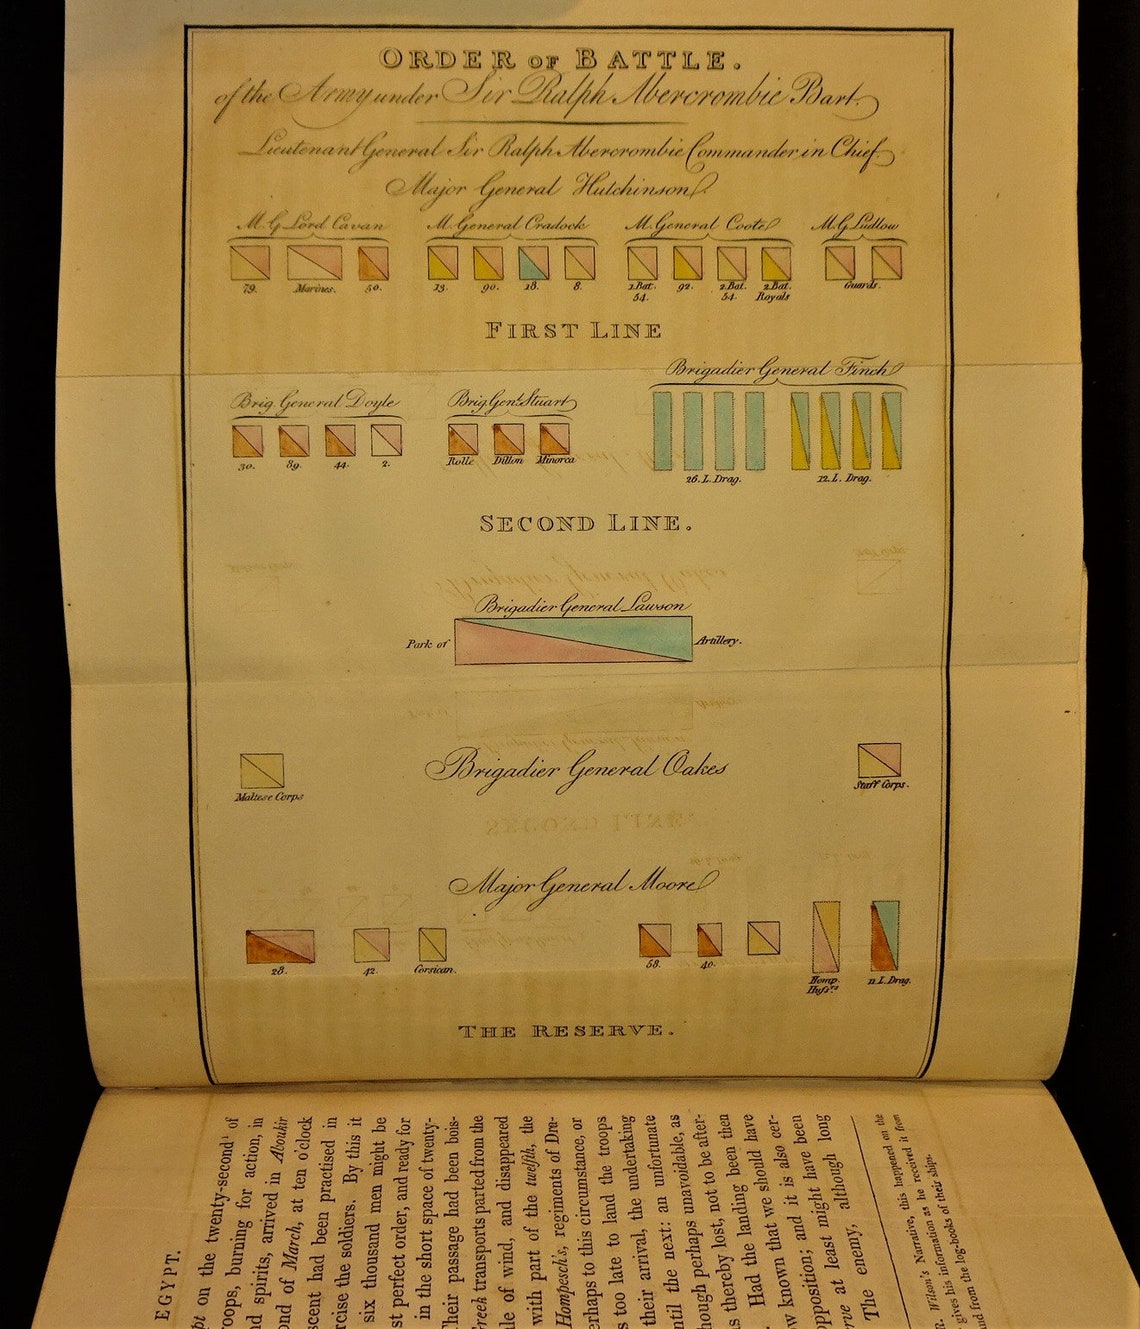 ORDER OF BATTLE.
of the Army under Sir Ralph Abercrombie Bart.
Lieutenant General Sir Ralph Abercrombie Commander in Chief.
Major General Hutchinson
M. G. Lord Cavan M. General Cradock M. General Coote M. G. Ludlow
79. Marines. 50. 13. 90. 18. 8. 1.Bat. 54. 92. 2.Bat. 54. 2.Bat. Royals Guards.
FIRST LINE
Brigadier General Finch
Brig. General Doyle Brig. Genl. Stuart
30. 89. 44. 2. Rolle Dillon Minorca
26. L. Drag. 12. L. Drag.
SECOND LINE.
Brigadier General Lawson
Park of Artillery.
Brigadier General Oakes
Maltese Corps Staff Corps.
Major General Moore
28. 42. Corsican. 58. 40. Homp. Hussrs 11 L. Drag.
THE RESERVE.
EGYPT.
pt on the twenty-second¹ of
roops, burning for action, in
nd spirits, arrived in Aboukir
ond of March, at ten o'clock
scent had been practised in
rcise the soldiers. By this it
six thousand men might be
st perfect order, and ready for
in the short space of twenty-
Their passage had been bois-
reek transports parted from the
le of wind, and disappeared
with part of the twelfth, the
Hompesch's, regiments of Dra-
erhaps to this circumstance, or
s too late to land the troops
their arrival, the undertaking
ntil the next: an unfortunate
hough perhaps unavoidable, as
s thereby lost, not to be after-
Had the landing been then
w known that we should have
opposition; and it is also cer-
rve at least might have been
The enemy, although long
R. Wilson's Narrative, this happened on the
gives his information as he received it from
nd from the log-books of their ships.